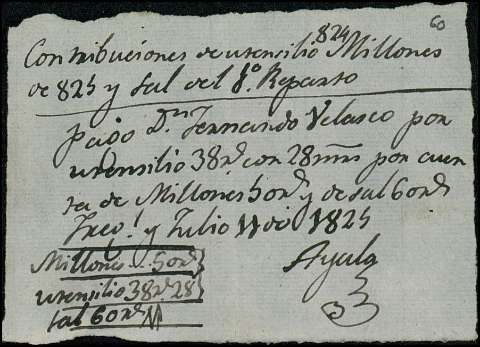 60
Contribuciones de utensilio 824 Millones
de 825 y sal del 1º Reparto
Pago Dn Fernando Velasco por
utensilio 38rs con 28mrs por cuen
ta de Millones 50rs y de sal 60rs
y Julio 11 de 1825
Ayala
Millones... 50rs
utensilio 38rs 28
sal 60rs